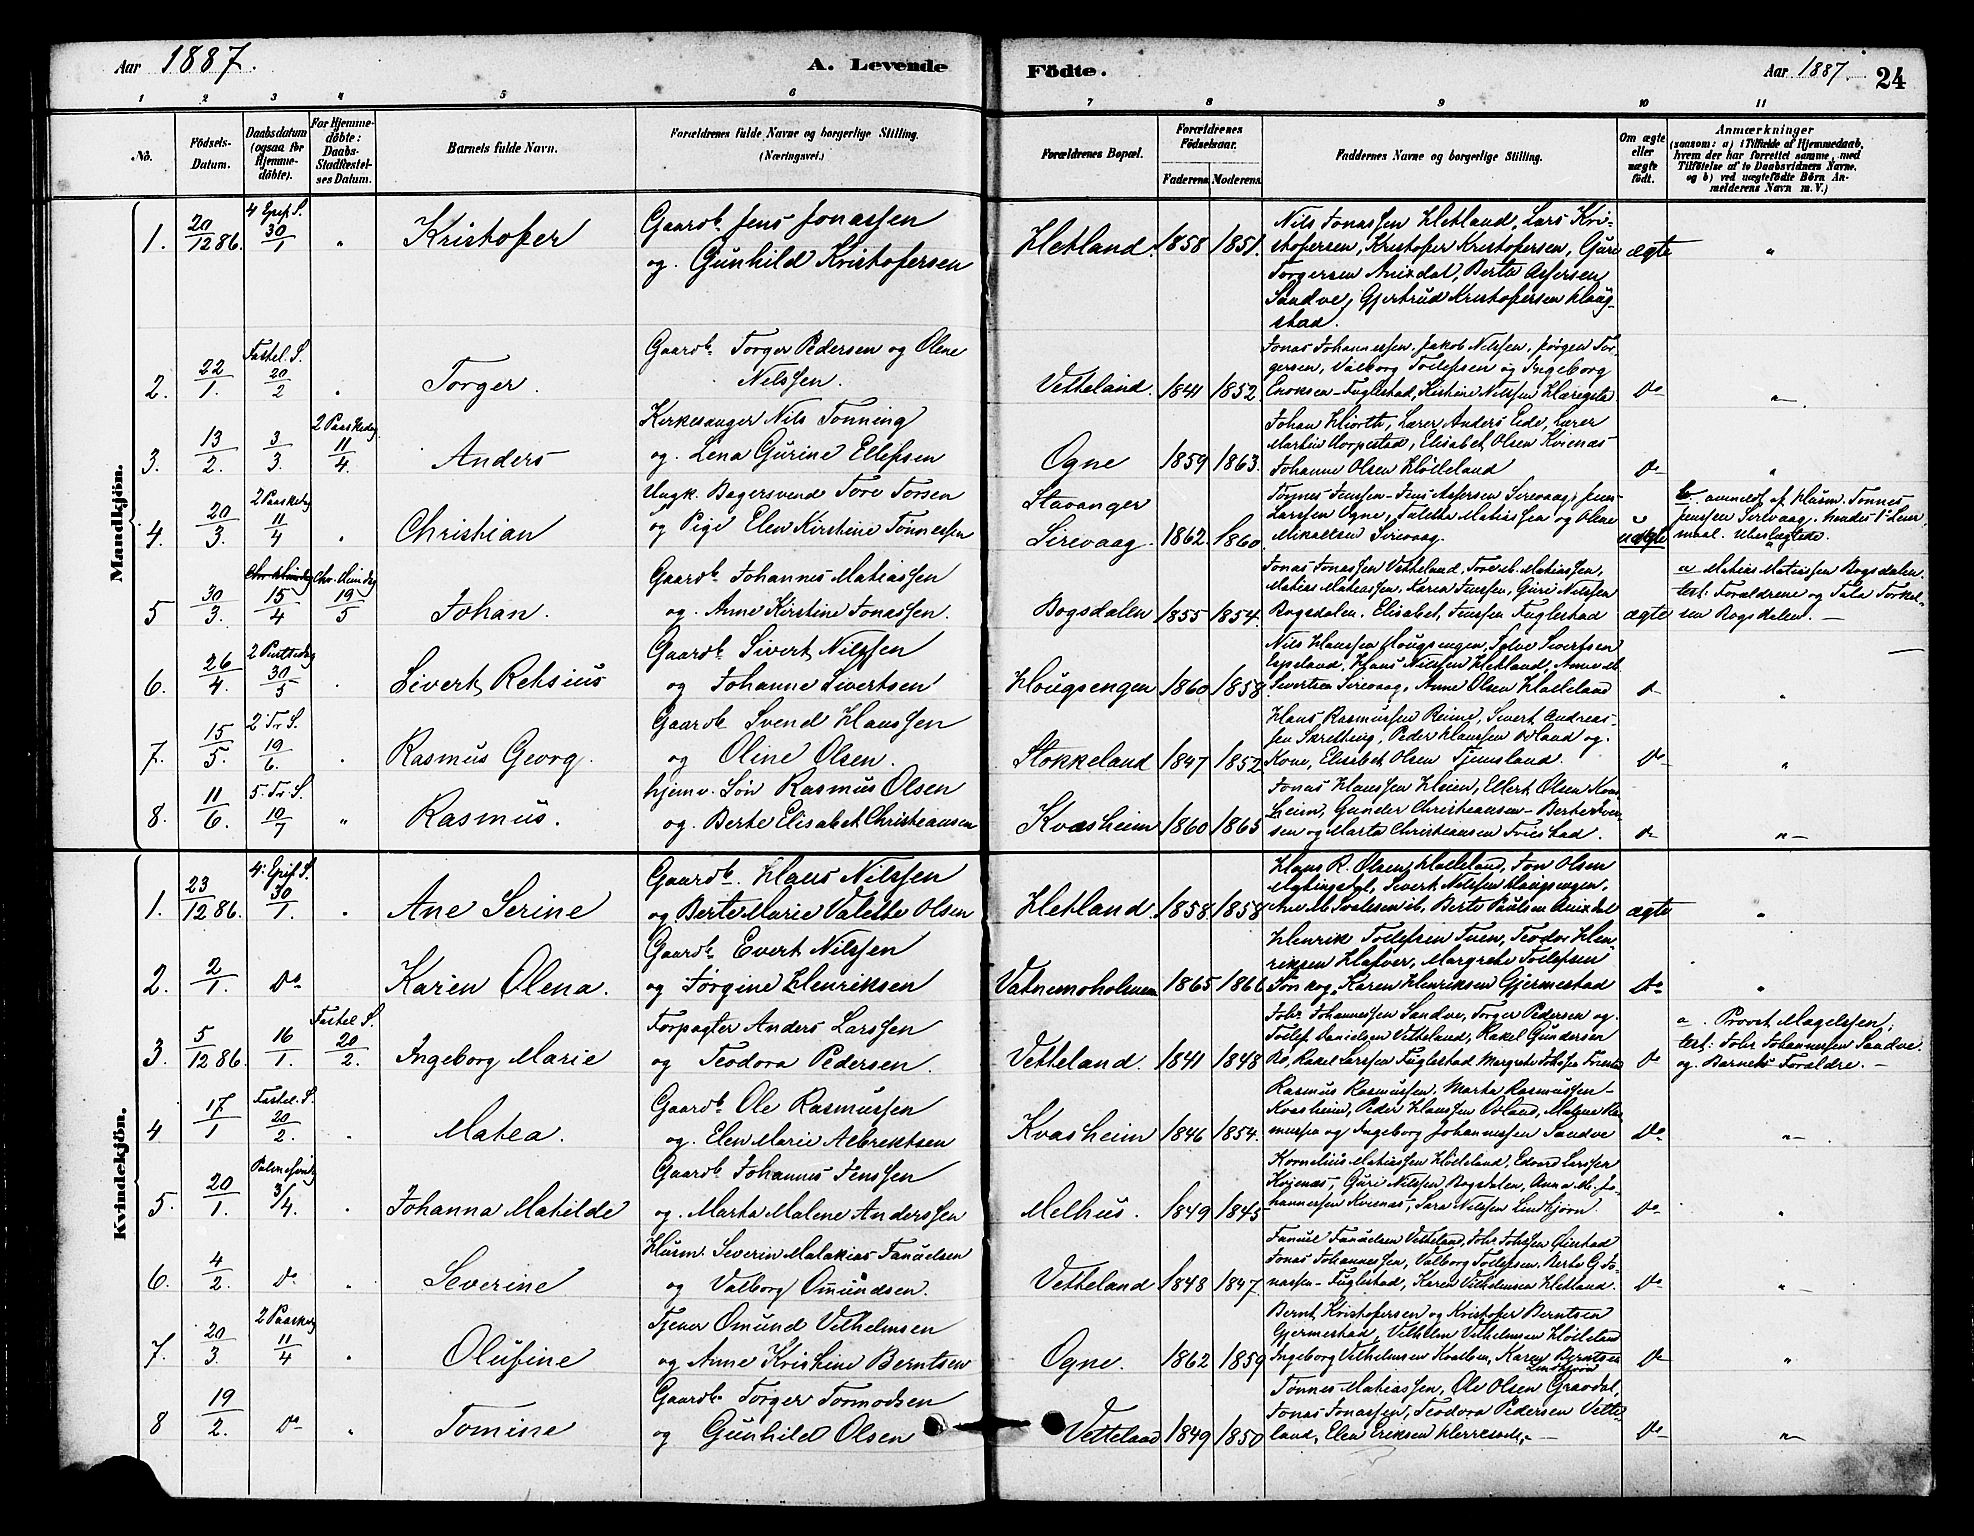 Aar 1887. A. Levende Födte. Aar 1887 24
1 2 3 4 5 6 7 8 9 10 11
No.
Födsels-Datum.
Daabsdatum (ogsaa for Hjemme-döbte).
For Hjemme-döbte: Daabs-Stadfæstel-ses Datum.
Barnets fulde Navn.
Forældrenes fulde Navne og borgerlige Stilling.
(Næringsvei.)
Forældrenes Bopæl.
Forældrenes Födselsaar.
Faderens. Moderens.
Faddernes Navne og borgerlige Stilling.
Om ægte eller uægte födt.
Anmærkninger
(saasom: a) i Tilfælde af Hjemmedaab,
hvem der har forrettet samme, med
Tilföielse af to Daabsvidners Navne,
og b) ved uægtefödte Börn An-
melderens Navn m. V.)
Mandkjön.
1. 20/12 86. 4 Epif. S. 30/1 " Kristofer
Gaardb. Jens Jonassen
og Gunhild Kristofersen
Hetland. 1858 1851.
Nils Jonassen Hetland, Lars Kri-
stofersen, Kristofer Kristofersen, Guri
Torgersen Anixdal, Berta Assersen
Sandve, Gjertrud Kristofersen Haug-
stad.
ægte "
2. 22/1. Fastel. S. 20/2 " Torger.
Gaardb. Torger Pedersen og Olene
Nilssen.
Vetteland. 1841 1852.
Jonas Johannessen, Jakob Nilssen, Jørgen Tor-
gersen, Valborg Tollefsen og Ingeborg
Eriksen - Fuglestad, Kistine Nilssen
Do "
3. 13/2. 3/3. 2 Paaskedag 11/4. Anders
Kirkesanger Nils Tonning
og Lena Gurine Ellefsen
Ogne 1859 1863.
Johan Hiorth, Lærer Anders Eide, Lærer
Martin Horpestad, Elisabet Olsen Kvienæs
Johanne Olsen Hölleland
Do "
4. 20/3. 2 Paaskedag 11/4 " Christian
Ungk. Bagersvend Tore Torsen
og Pige Elen Kirstine Tönnessen
Stavanger
Sirevaag. 1862. 1860.
Tönnes Jenssen - Jens Assersen Sirevaag, Jens
Larssen Ogne, Taletta Matiassen og Olene
Mikaelsen Sirevaag.
uægte
b. anmeldt af Husm. Tönnes
Jenssen Sirevaag. Hendes 1ste Leier-
maal. Ubeslægtede.
5 30/3. 15/4 Chr. Himdag 19/5 Johan.
Gaardb. Johannes Matiassen
og Anne Kirstine Jonassen.
Bogsdalen 1855 1854.
Jonas Jonassen Vetteland, Tore M. Matiassen,
Matias Matiassen, Karen Jenssen, Guri Nilssen
Bogsdalen, Elisabet Jenssen Fuglestad
ægte
a Matias Matiassen Bogsdalen.
test: Forældrene og Tala Torkel-
sen Bogsdalen. —
6. 26/4. 2 Pintsedag 30/5 " Sivert Retsius
Gaardb. Sivert Nilssen
og Johanne Sivertsen
Hougsengen 1860 1858
Nils Hanssen Hougsengen, Salve Sivertsen
Epeland, Hans Nilssen Hetland, Anne M.
Sivertsen Sirevaag, Anne Olsen Hölleland
Do "
7. 15/5. 2 Tr. S. 19/6. " Rasmus Georg.
Gaardb. Svend Hanssen
og Oline Olsen.
Stokkeland 1847 1852
Hans Rasmussen Reime, Sivert Andreas-
sen Særetheig, Peder Hanssen Odland og
Kone, Elisabet Olsen Tjemsland.
Do "
8. 11/6. 5. Tr. S. 10/7 " Rasmus.
hjemv. Sön Rasmus Olsen
og Berte Elisabet Christiansen
Kvasheim 1860 1865
Jonas Hanssen Heien, Ellert Olsen Kvas-
heim, Gunder Christiansen - Berte Iver-
sen og Marta Christiansen Friestad.
Do "
Kvindekjön.
1. 23/12 86. 4: Epif. S. 30/1. " Ane Serine
Gaardb. Hans Nilssen
og Berte Marie Valette Olsen
Hetland. 1858. 1858
Hans R. Olsen Hölleland, Jon Olsen
Sivert Nilssen Hougsengen,
Ane M. Berte Paulsen Anixdal
ægte "
2. 2/1. Do Karen Olena.
Gaardb. Evert Nilssen
og Jörgine Henriksen
Vatnemoholmen 1865 1866
Henrik Tollefsen Tuen, Teodor Hen-
riksen Margrete Tollefsen
Karen Henriksen Gjermestad
Do "
3. 5/12 86. 16/1. Fastel S. 20/2. Ingeborg Marie
Forpagter Anders Larssen
og Teodora Pedersen.
Vetteland. 1841 1848
Johs Johannessen Sandve, Torger Pedersen og
Tollef Danielsen Vetteland, Rakel Gundersen
Rakel Larssen Fuglestad Margrete
Do
a. Provst Magelssen.
test: Johs Johannessen Sandve
og Barnets Forældre. —
4 17/1 Fastel. S. 20/2. " Matea.
Gaardb. Ole Rasmussen
og Elen Marie Albrektsen
Kvasheim 1846 1854.
Rasmus Rasmussen, Marta Rasmussen -
Kvasheim, Peder Hanssen Odland, Malene Ras-
mussen og Ingeborg Johannessen Sandve
Do "
5. 20/1. Palmesönd. 3/4. " Johanna Matilde
Gaardb. Johannes Jenssen
og Marta Malene Anderssen
Melhus. 1849 1845
Kornelius Matiassen Hölleland, Edvard Larssen
Kvienæs, Guri Nilssen Bogsdalen, Anna M. Jo-
hannessen Kvienæs, Sara Nilssen Lindtjørn.
Do "
6. 4/2. Do " Severine
Husm. Severin Malakias Fanuelsen
og Valborg Omundsen.
Vetteland 1848 1847.
Fanuel Fanuelsen Vetteland, Johs Johssen
Jonas Johannessen, Valborg Tollefsen, Berte G. Jo-
nassen - Fuglestad, Karen Vilhelmsen Hetland.
Do "
7. 20/3. 2 Paaskedag 11/4 " Olufine
Tjener Omund Vilhelmsen
og Anne Kristine Berntsen
Ogne. 1862 1859
Bernt Kristofersen og Kristofer Berntsen
Gjermestad, Vilhelm Vilhelmsen Hölleland
Ingeborg Vilhelmsen Karen Berntsen
Lindtjörn
Do "
8 19/2. Do " Tomine
Gaardb. Torger Tormodsen
og Gunhild Olsen
Vetteland 1849 1850
Tönnes Matiassen, Ole Olsen Gravdal,
Jonas Jonassen, Teodora Pedersen Vette-
land, Elen Eriksen —
Do "